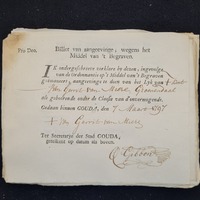 Pro Deo.
Billet van aangeevinge, wegens het
Middel van 't Begraven.
IK ondergeschreeve verklare by deezen, ingevolge
van de Ordonnantie op 't Middel van 't Begraven
geëmaneert, aangeevinge te doen van het Lyk van
Jan Gerrit van
als gehoorende onder de Classis van d'onvermogende.
Gedaan binnen GOUDA, den 7 Maart 1797
Jan Gerrit van
Ter Secretarye der Stad GOUDA,
geteekent op datum als boven.